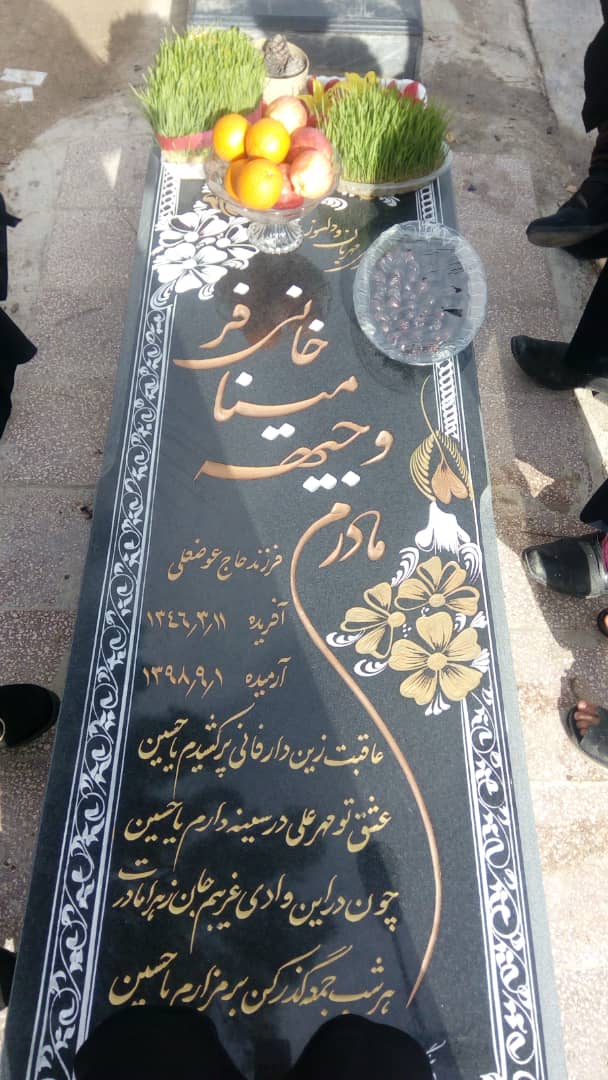 مهربان و دلسوز
خانی فر
مینا
وجیهه
مادرم
فرزند حاج عوضعلی
آفریده ۱۳۴۶٫۳٫۱۱
آرمیده ۱۳۹۸٫۹٫۱
عاقبت زین دار فانی پر کشیدم یا حسین
عشق تو مهر علی در سینه دارم یا حسین
چون در این وادی غریبم جان زهرا مادرت
هر شب جمعه گذر کن بر مزارم یا حسین